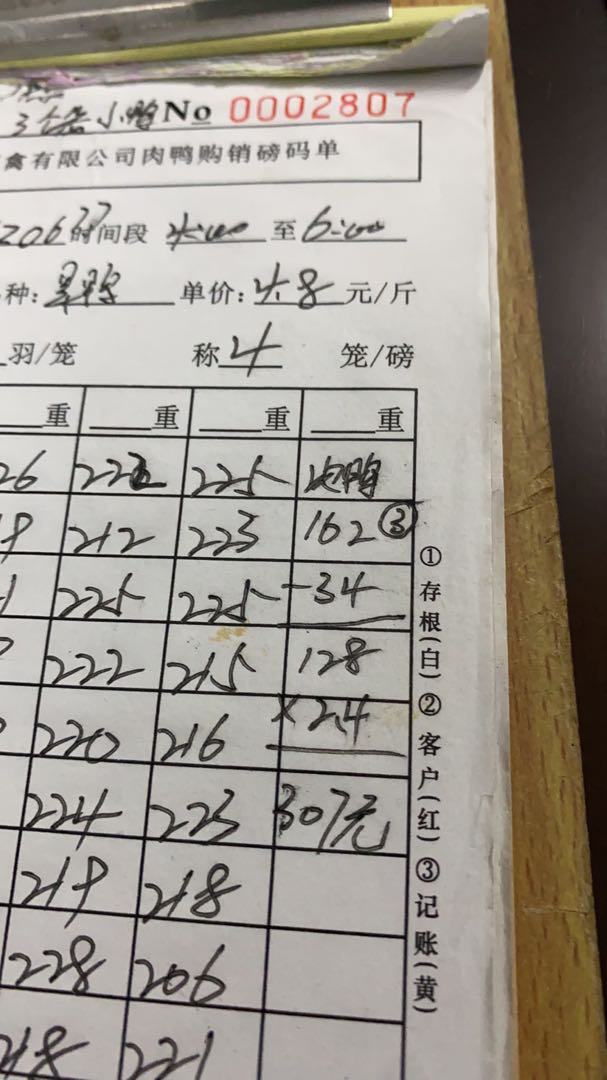 3 小鸭 No 0002807
禽有限公司肉鸭购销磅码单
时间段 4:00 至 6:00
种: 单价: 4.8 元/斤
羽/笼 称 4 笼/磅
重 重 重 重
26 222 225 次鸭
212 223 162 ③
225 225 -34
222 215 128
220 216 ×2.4
224 223 307元
219 218
228 206
218 221
①存根(白)②客户(红)③记账(黄)